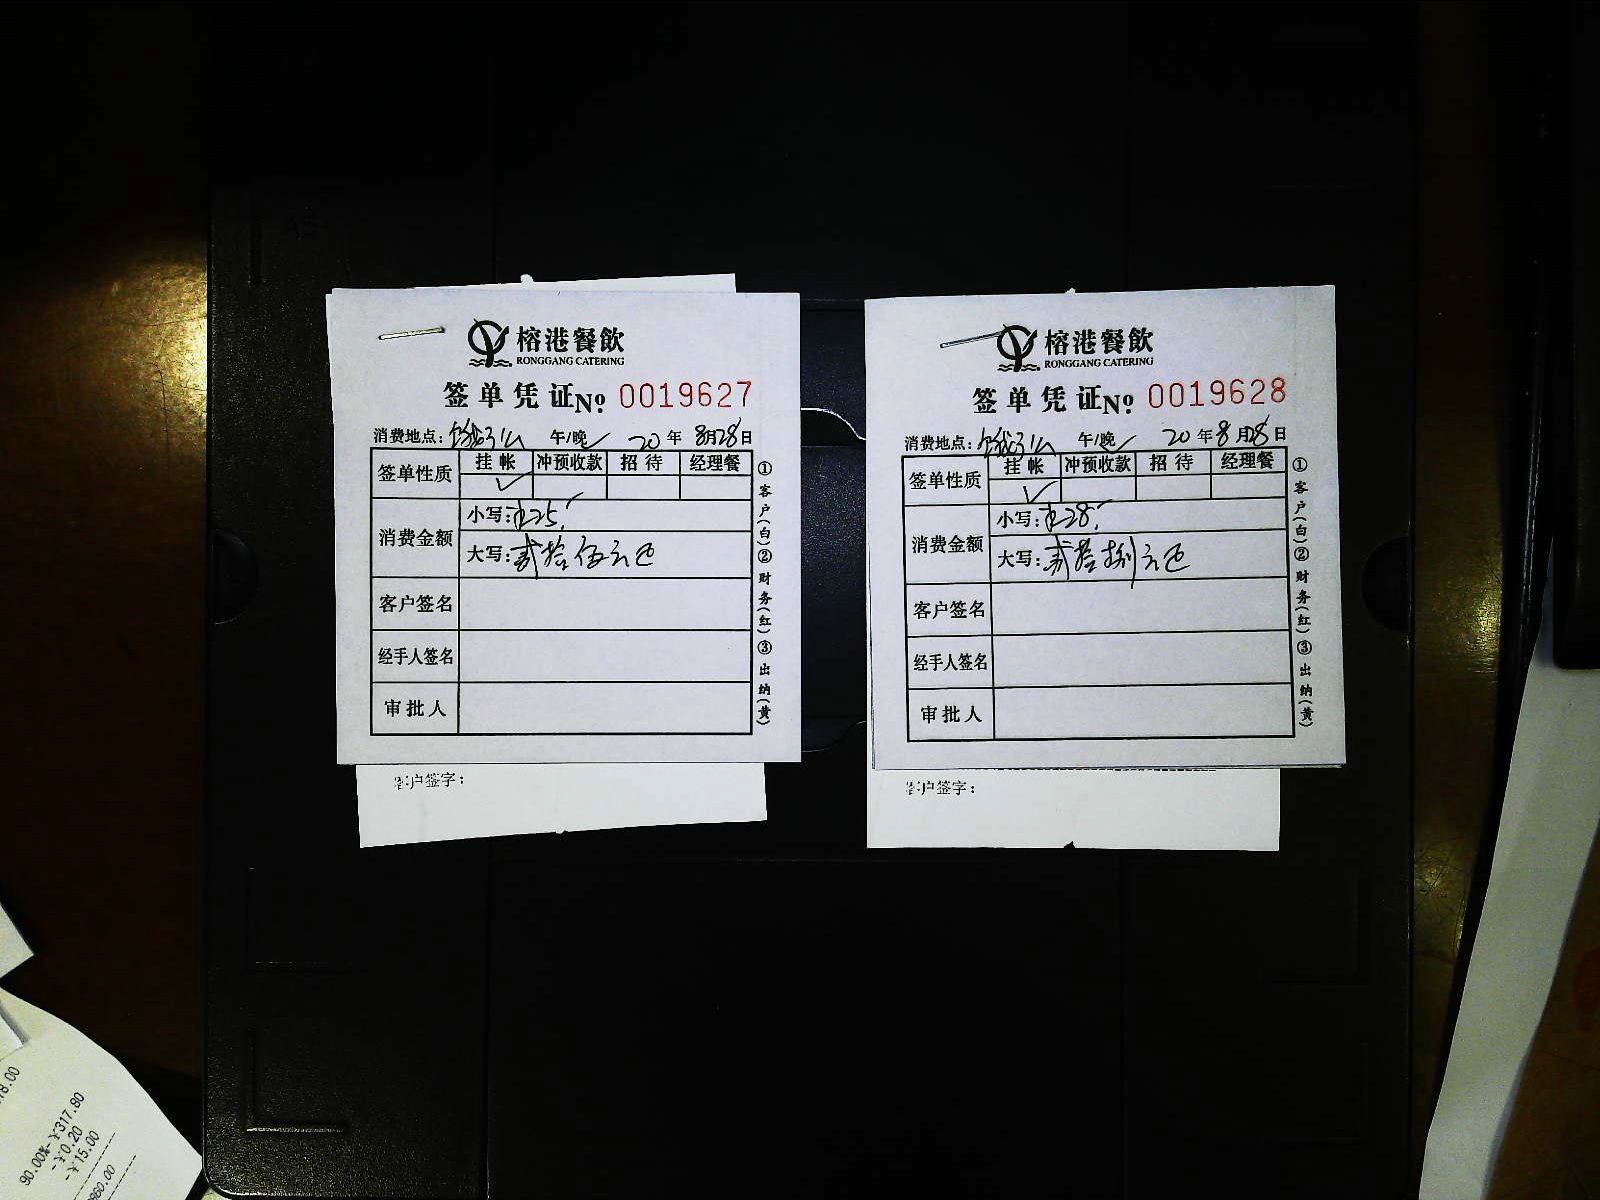 榕港餐飲
RONGGANG CATERING
签单凭证 No 0019627
消费地点: 午/晚✓ 20年8月28日
签单性质 挂帐 冲预收款 招待 经理餐
✓
消费金额 小写:¥25.-
大写:贰拾伍元
客户签名
经手人签名
审批人
①客户(白)②财务(红)③出纳(黄)
客户签字:
榕港餐飲
RONGGANG CATERING
签单凭证 No 0019628
消费地点: 午/晚✓ 20年8月28日
签单性质 挂帐 冲预收款 招待 经理餐
✓
消费金额 小写:¥28.-
大写:贰拾捌元
客户签名
经手人签名
审批人
①客户(白)②财务(红)③出纳(黄)
客户签字:
90.00%-¥317.80
-¥0.20
-¥15.00